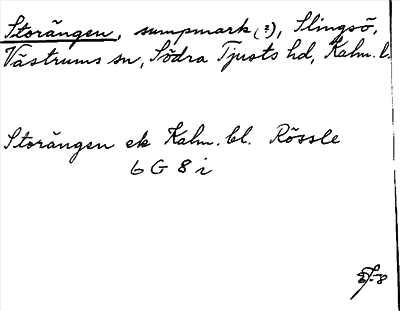 Storängen, sumpmark (?), Slingsö,
Västrums sn, Södra Tjusts hd, Kalm. l.
Storängen ek Kalm. bl. Rössle
6 G 8 i